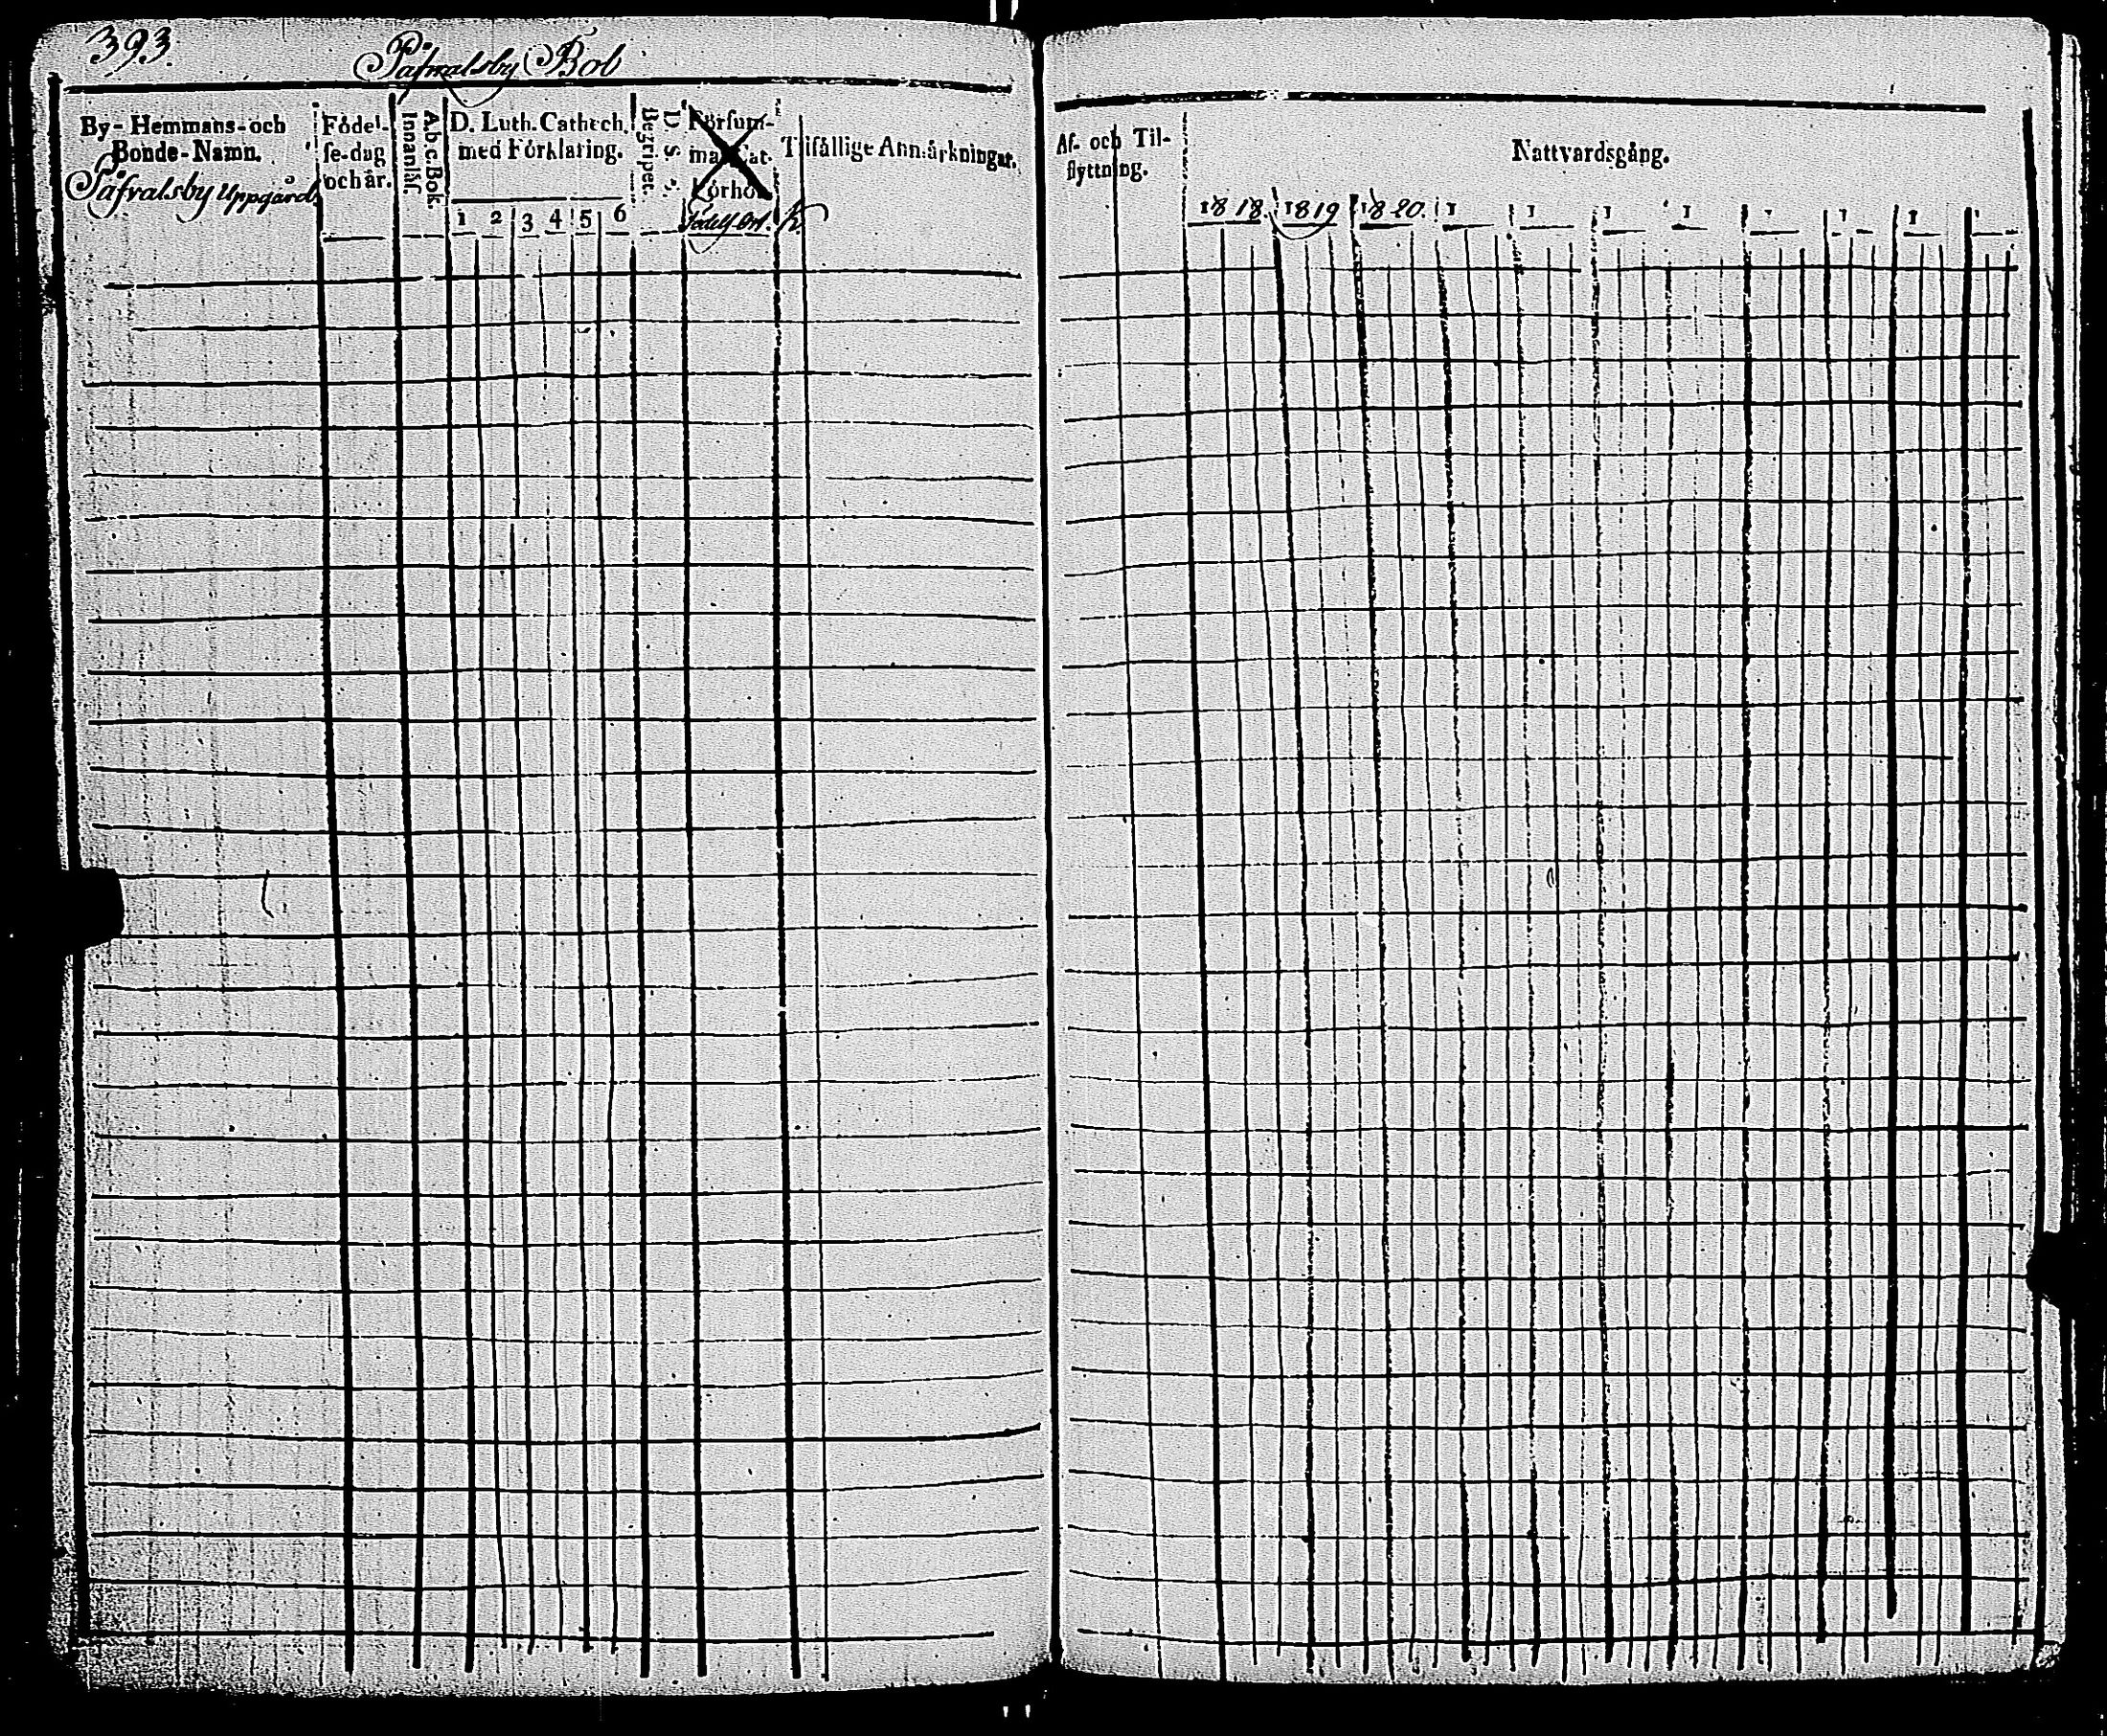 393.
Påfvalsby Bol
By- Hemmans- och
Bonde-Namn.
Påfvalsby Uppgård.
Födel-
se-dag
och år.
A.b.c. Bok.
Innanläs.
D. Luth. Cathech.
med Förklaring.
1 2 3 4 5 6
D. S. S.
Begripet.
Försum-
mat Cat.
Förhör.
Födelse Ort.
Tilfällige Anmärkningar.
Af- och Til-
flyttning.
Nattvardsgång.
1818. 1819 1820. 1 1 1 1 1 1 1 1